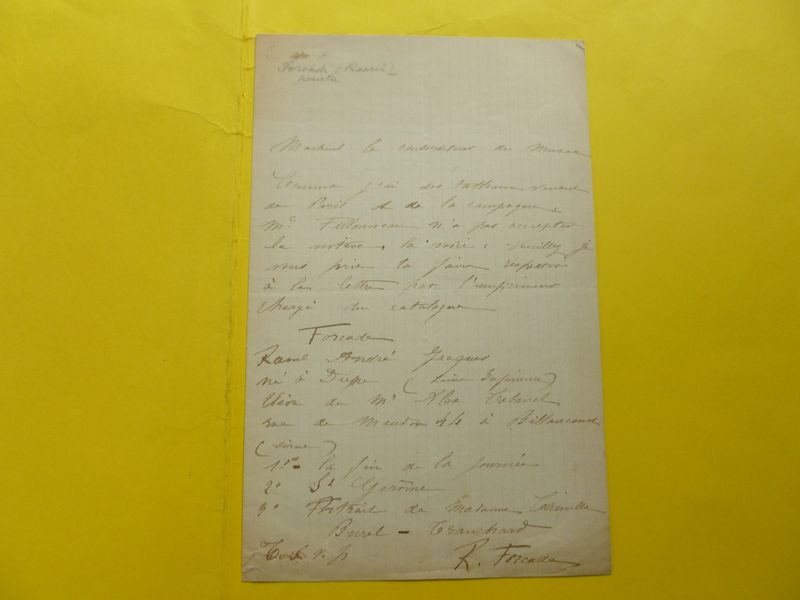 Forcade (Raoul)
peintre
le conservateur du Musée
Comme j'ai des tableaux venant
de Paris & de la campagne,
Mr n'a pas accepter
la notice, la voici : veuillez je
vous prie la faire
à la lettre par l'imprimeur
chargé du catalogue
Forcade
Raoul André Jacques
né à Dieppe (Seine Inférieure)
Elève de Mr
rue de Meudon 44 à Billancourt
(Seine)
1º la fin de la journée
2º St Gerôme
3º Portrait de Madame
Burel –
T. S. v. p
R. Forcade